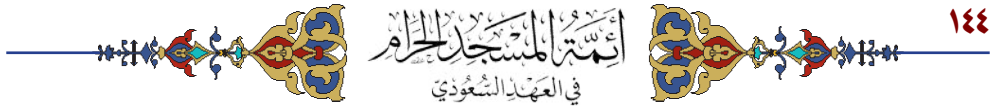 ١٤٤
أَئِمَّةُ المَسْجِدِ الحَرَامِ
فِي العَهْدِ السُّعُودِيّ